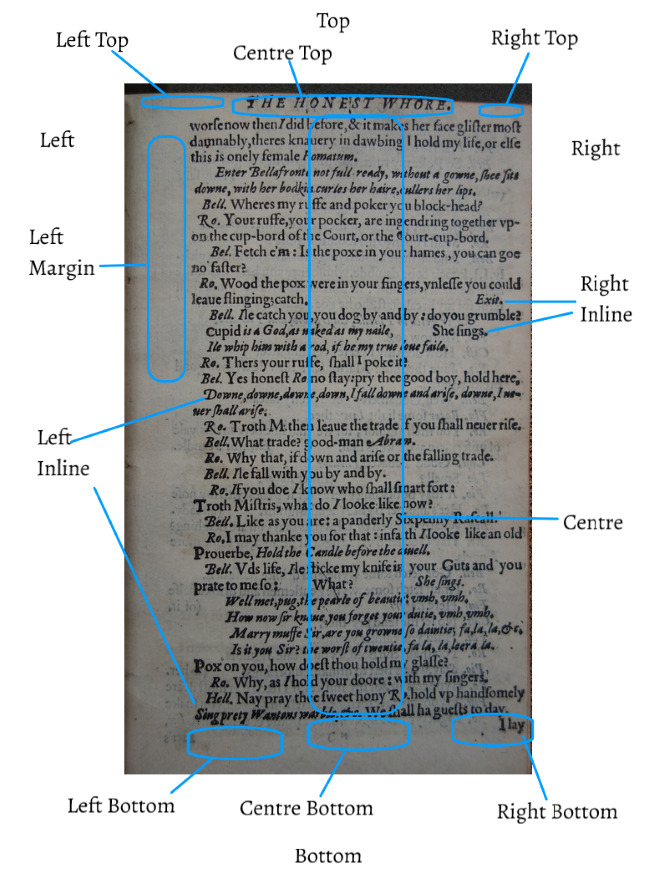 Top
Left Top
Centre Top
Right Top
THE HONEST WHORE.
Left
Right
worſe now then I did before, & it makes her face gliſter moſt
damnably, theres knauery in dawbing I hold my life, or elſe
this is onely female Pomatum.
Enter Bellafront not full ready, without a gowne, ſhee ſits
downe, with her bodkin curles her haire, cullers her lips.
Bell. Wheres my ruffe and poker you block-head?
Ro. Your ruffe, your pocker, are ingendring together vp-
on the cup-bord of the Court, or the Court-cup-bord.
Bel. Fetch e'm: Is the poxe in your hames, you can goe
no faſter?
Left
Margin
Ro. Wood the pox were in your fingers, vnleſſe you could
leaue flinging; catch. Exit.
Right
Inline
Bell. Ile catch you, you dog by and by: do you grumble?
Cupid is a God, as naked as my naile, She ſings.
Ile whip him with a rod, if he my true loue faile.
Ro. Thers your ruffe, ſhall I poke it?
Bel. Yes honeſt Ro no ſtay: pry thee good boy, hold here,
Downe, downe, downe, down, I fall downe and ariſe, downe, I ne-
uer ſhall ariſe.
Left
Inline
Ro. Troth M. then leaue the trade if you ſhall neuer riſe.
Bell. What trade? good-man Abram.
Ro. Why that, if down and ariſe or the falling trade.
Bell. Ile fall with you by and by.
Ro. If you doe I know who ſhall ſmart for t:
Troth Miſtris, what do I looke like now?
Bell. Like as you are: a panderly Sixpenny Raſcall.
Centre
Ro, I may thanke you for that: infaith I looke like an old
Prouerbe, Hold the Candle before the diuell.
Bell. Vds life, Ile ſticke my knife in your Guts and you
prate to me ſo: What? She ſings.
Well met, pug, the pearle of beautie: vmh, vmh.
How now ſir knaue, you forget your dutie, vmh, vmh.
Marry muffe Sir, are you growne ſo daintie; fa, la, la, &c.
Is it you Sir? the worſt of twentie, fa la, la, leera la.
Pox on you, how doeſt thou hold my glaſſe?
Ro. Why, as I hold your doore: with my fingers.
Hell. Nay pray thee ſweet hony Ro. hold vp handſomely
Sing prety Wantons warble, &c. We ſhall ha gueſts to day.
I lay
Left Bottom
Centre Bottom
Right Bottom
Bottom